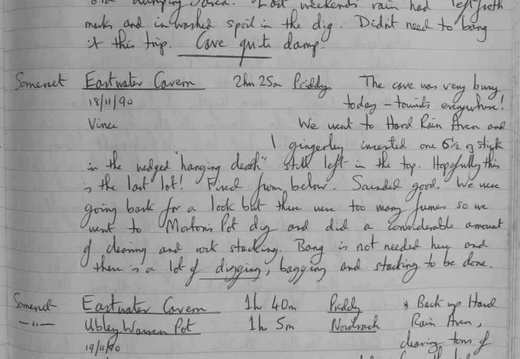 rain had left froth
marks and inwashed spoil in the dig. Didn't need to bang
it this trip. Cave quite damp.
Somerset Eastwater Cavern 2hr 25m Priddy The cave was very busy
18/11/90 today - tourists everywhere!
Vince We went to Hard Rain Aven and
I gingerley inserted one 6½ oz stick
in the wedged "hanging death" still left in the top. Hopefully this
is the last lot! Fired from below. Sounded good. We were
going back for a look but there were too many fumes so we
went to Morton's Pot dig and did a considerable amount
of clearing and rock stacking. Bang is not needed here and
there is a lot of digging, bagging and stacking to be done.
Somerset Eastwater Cavern 1h 40m Priddy Back up Hard
-"- Ubley Warren Pot 1h 5m Nordrach Rain Aven,
19/11/90 clearing tons of